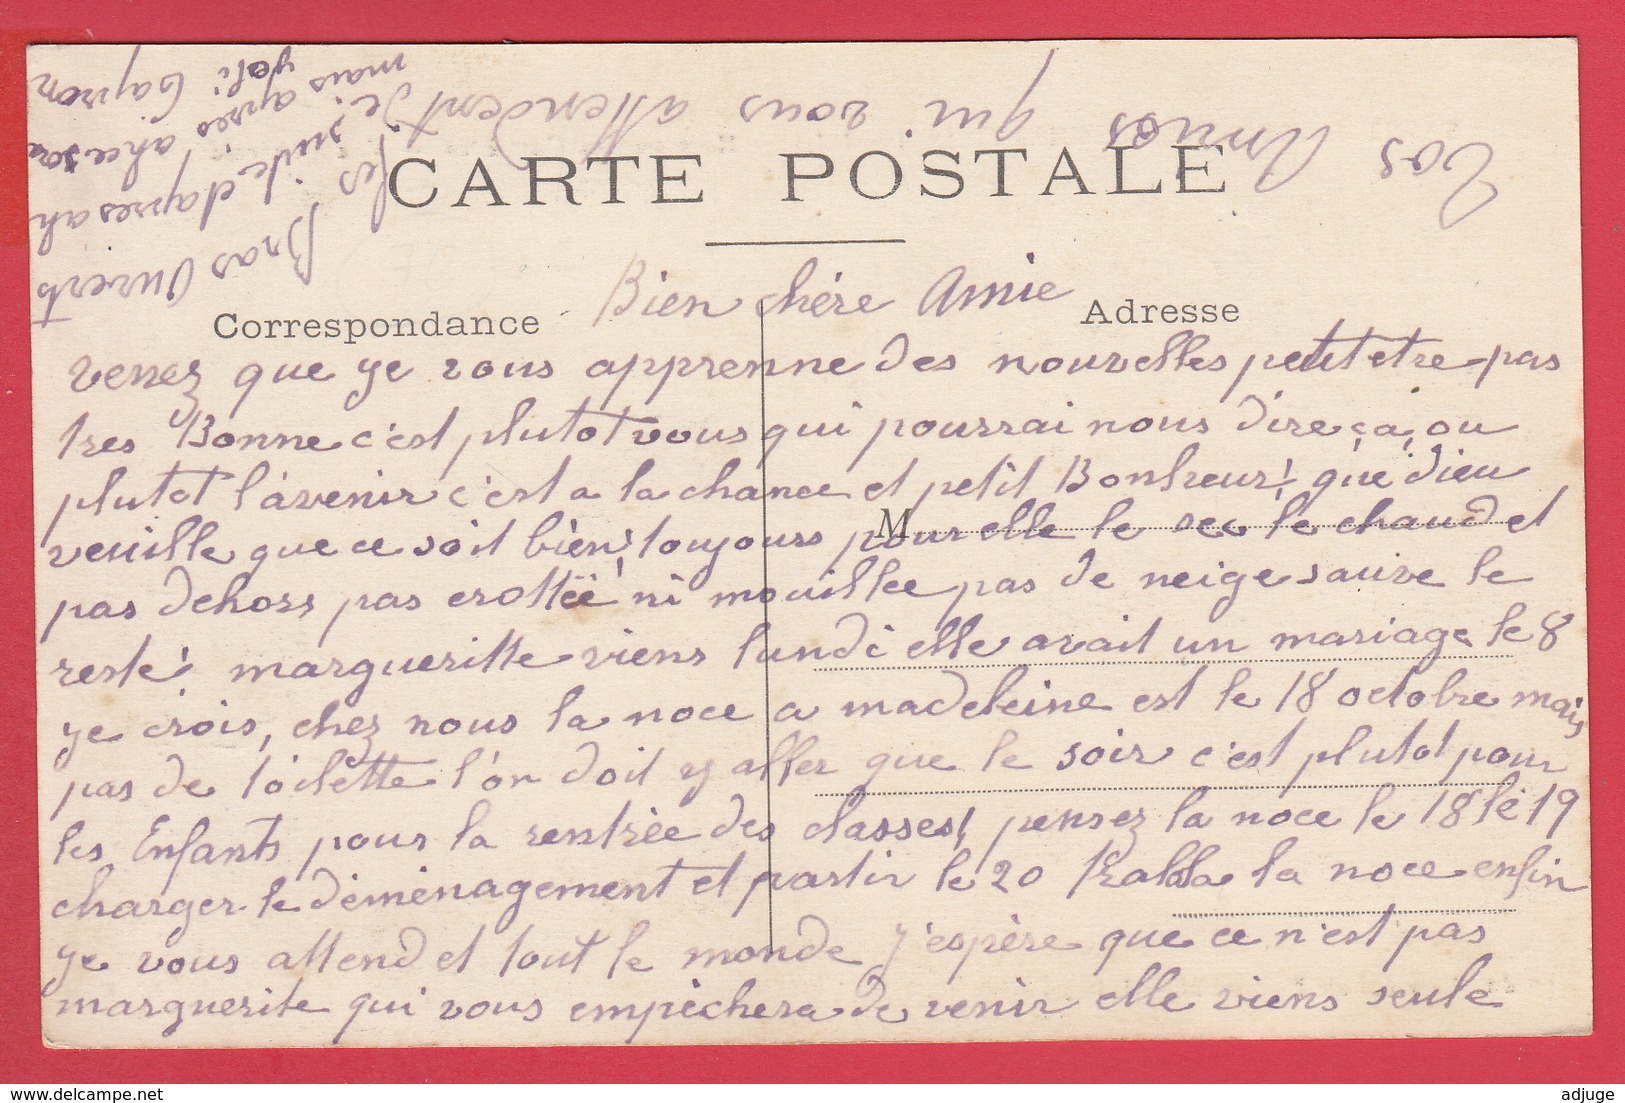 CARTE POSTALE
Correspondance
Adresse
M
Bien chère Amie
venez que je vous apprenne des nouvelles peut etre pas
tres Bonne c'est plutot vous qui pourrai nous dire ça, ou
plutot l'avenir c'est a la chance et petit Bonheur! que dieu
veuille que ce soit bien! toujours pour elle le sec le chaud et
pas dehors pas crottée ni mouillée pas de neige sauve le
reste! margueritte viens lundi elle avait un mariage le 8
je crois, chez nous la noce a madeleine est le 18 octobre mais
pas de toilette l'on doit y aller que le soir c'est plutot pour
les Enfants pour la rentrée des classes! pensez la noce le 18 le 19
charger le déménagement et partir le 20 la noce enfin
je vous attend et tout le monde j'espère que ce n'est pas
marguerite qui vous empêchera de venir elle viens seule
mais apres
de suite et apres
vos Amies qui vous attendent
les Bras Ouverts